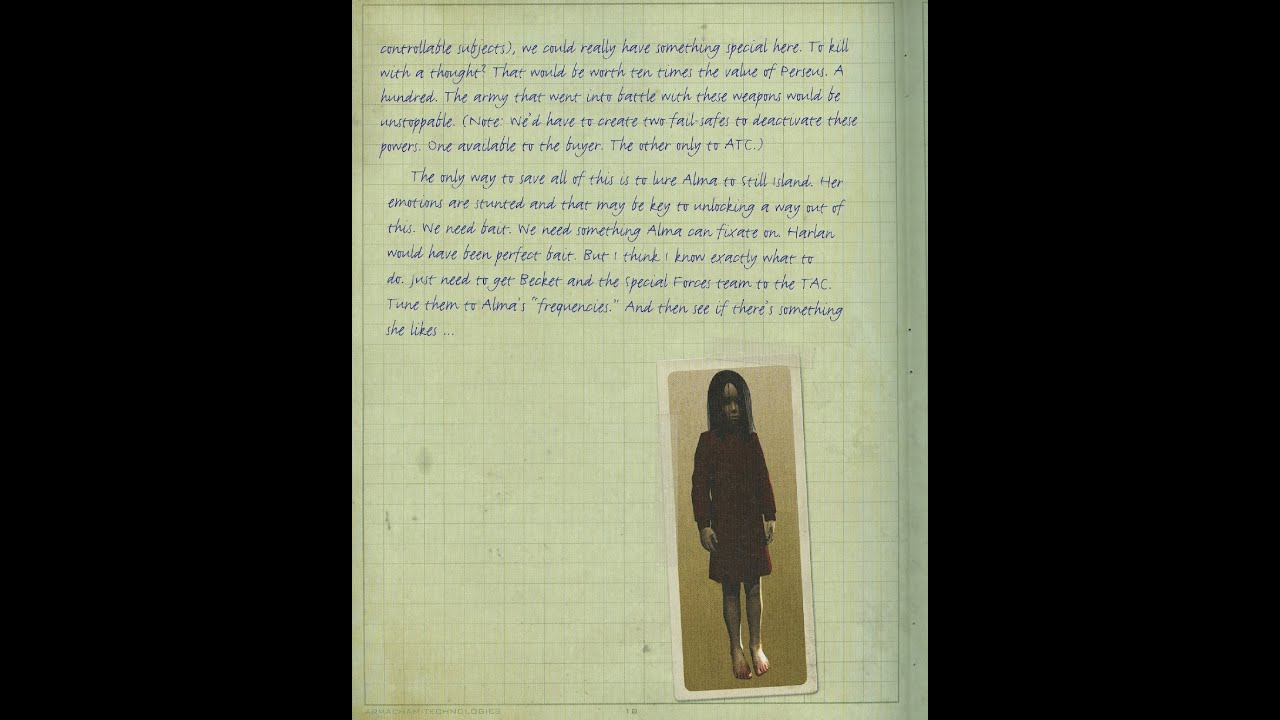 controllable subjects), we could really have something special here. To kill
with a thought? That would be worth ten times the value of Perseus. A
hundred. The army that went into battle with these weapons would be
unstoppable. (Note: We'd have to create two fail-safes to deactivate these
powers. One available to the buyer. The other only to ATC.)
The only way to save all of this is to lure Alma to Still Island. Her
emotions are stunted and that may be key to unlocking a way out of
this. We need bait. We need something Alma can fixate on. Harlan
would have been perfect bait. But I think I know exactly what to
do. Just need to get Becket and the Special Forces team to the TAC.
Tune them to Alma's "frequencies." And then see if there's something
she likes ...
ARMACHAM TECHNOLOGIES
18